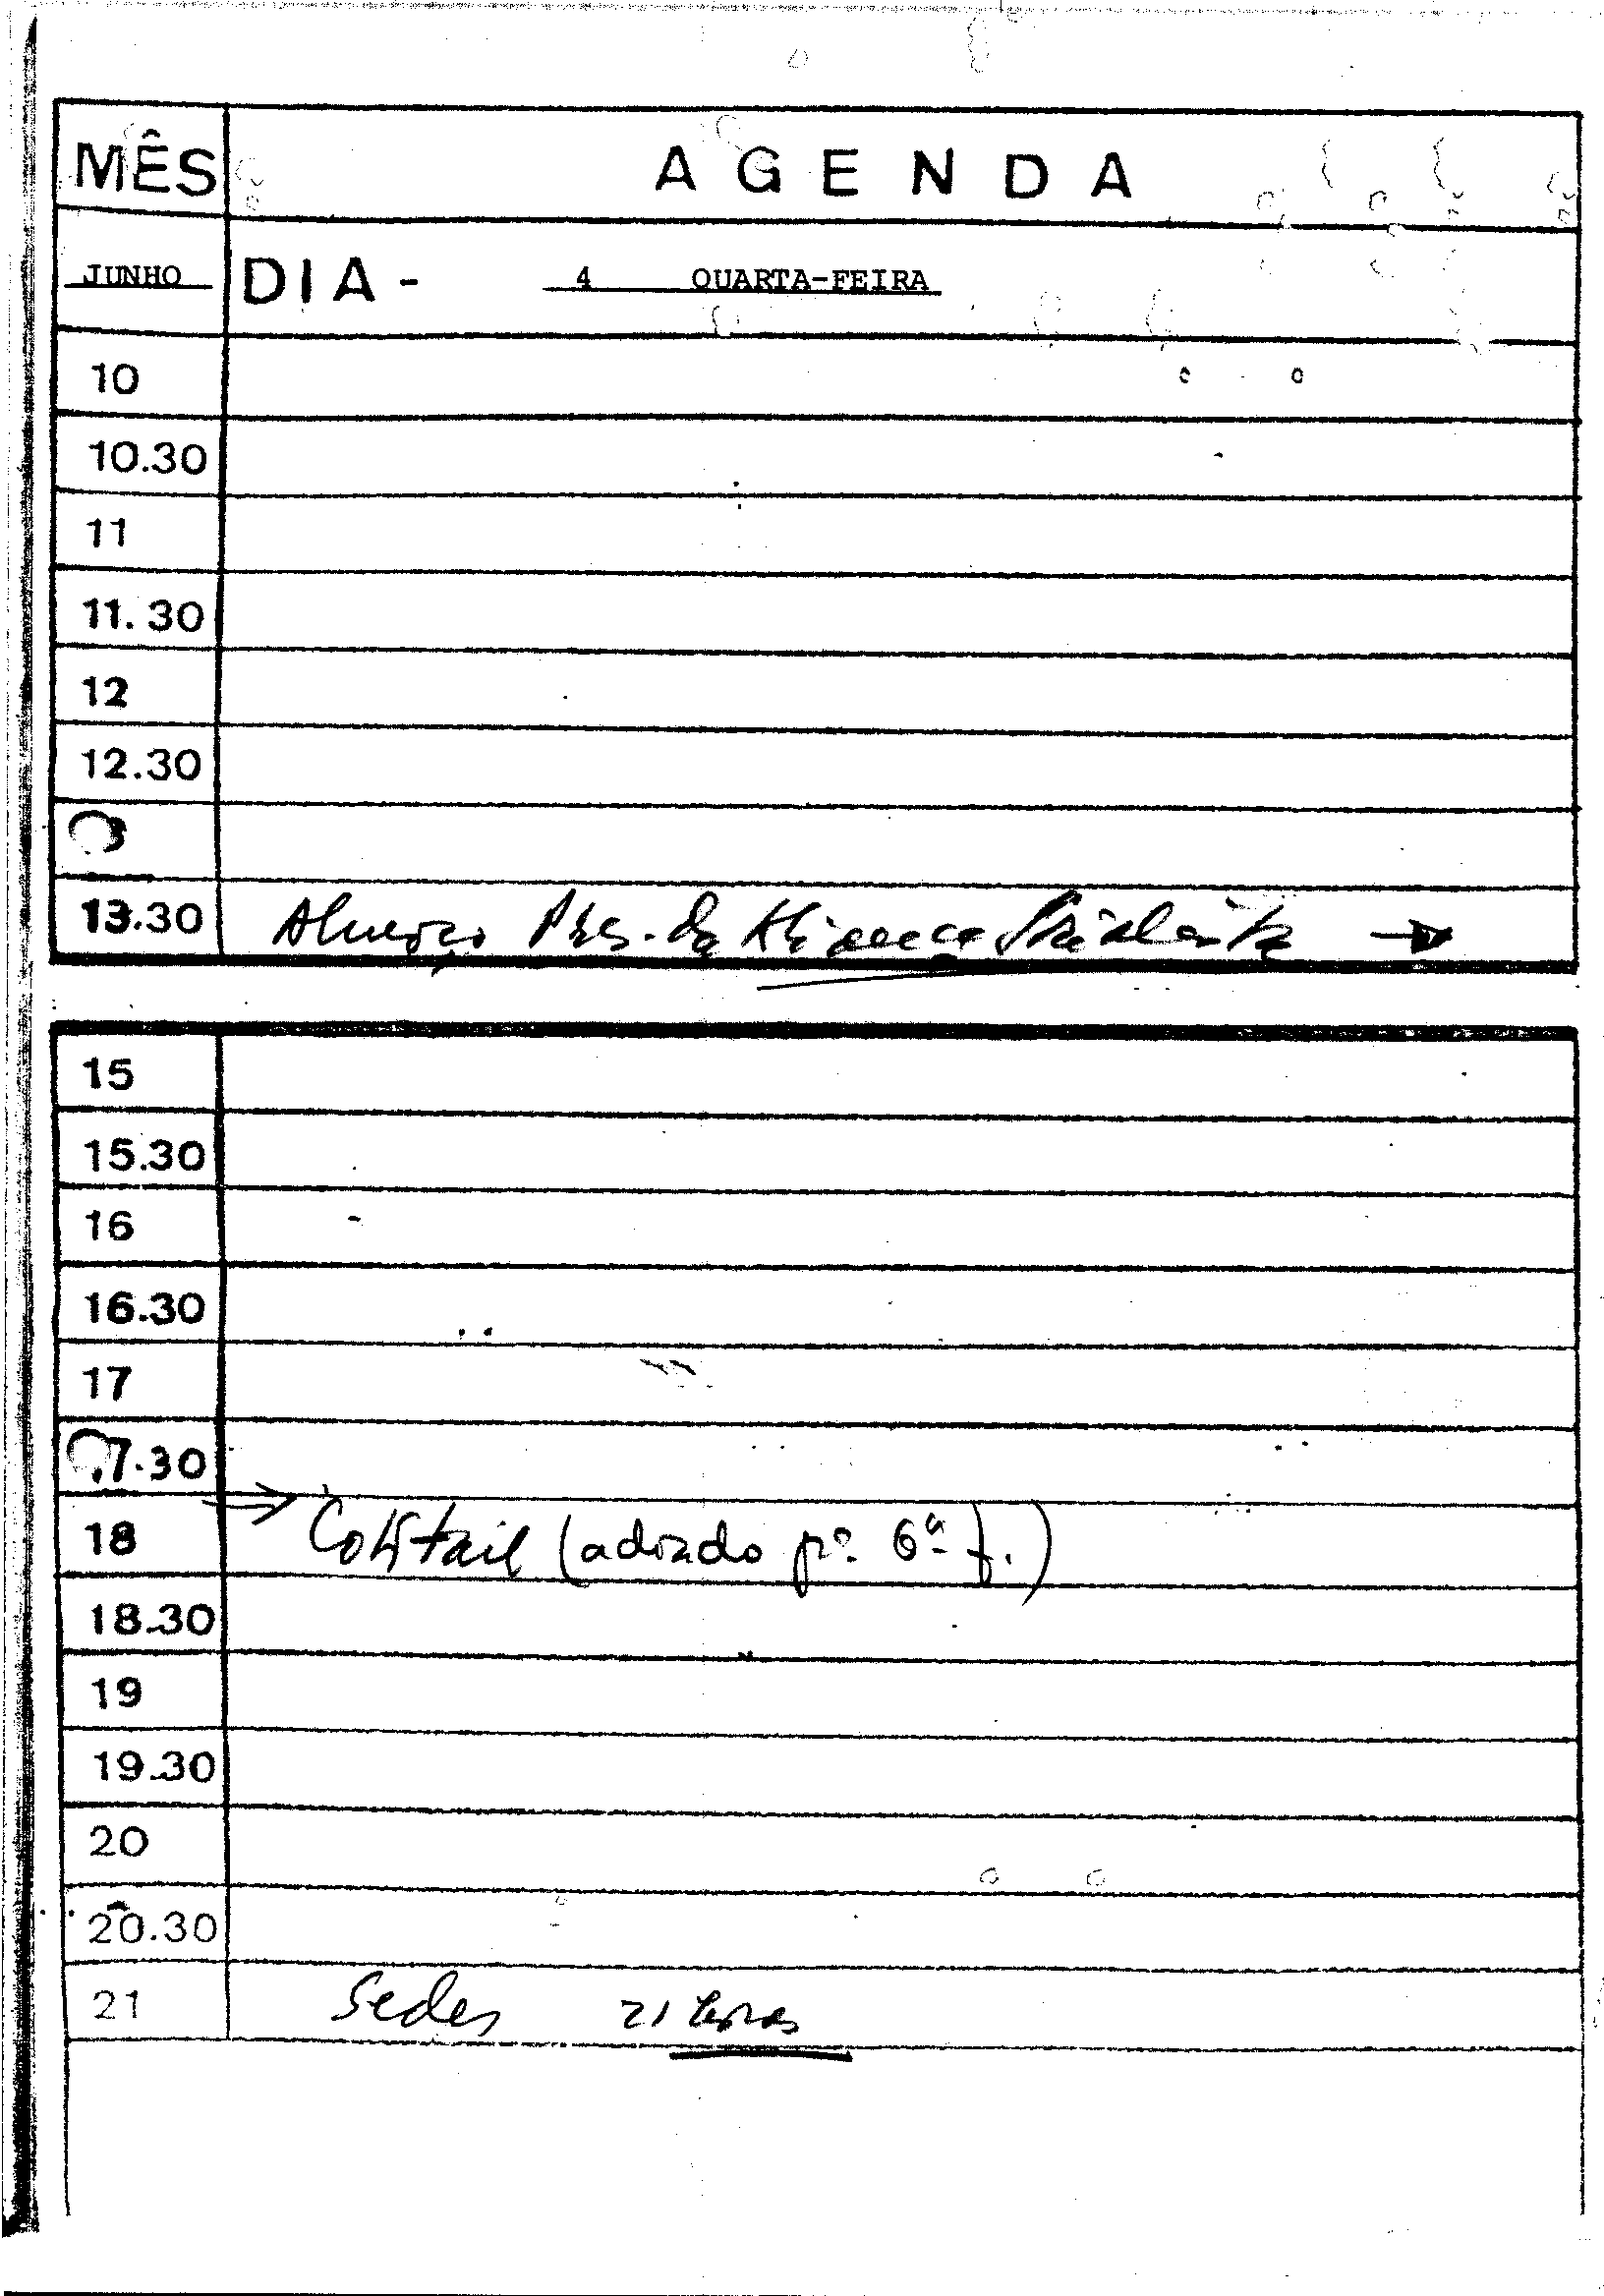 MÊS AGENDA
JUNHO DIA - 4 QUARTA-FEIRA
10
10.30
11
11.30
12
12.30
3
13.30 Almoço Pres. da Aliança →
15
15.30
16
16.30
17
17.30
18 → Coktail (adiado pª. 6ª f.)
18.30
19
19.30
20
20.30
21 Sedes 21 horas